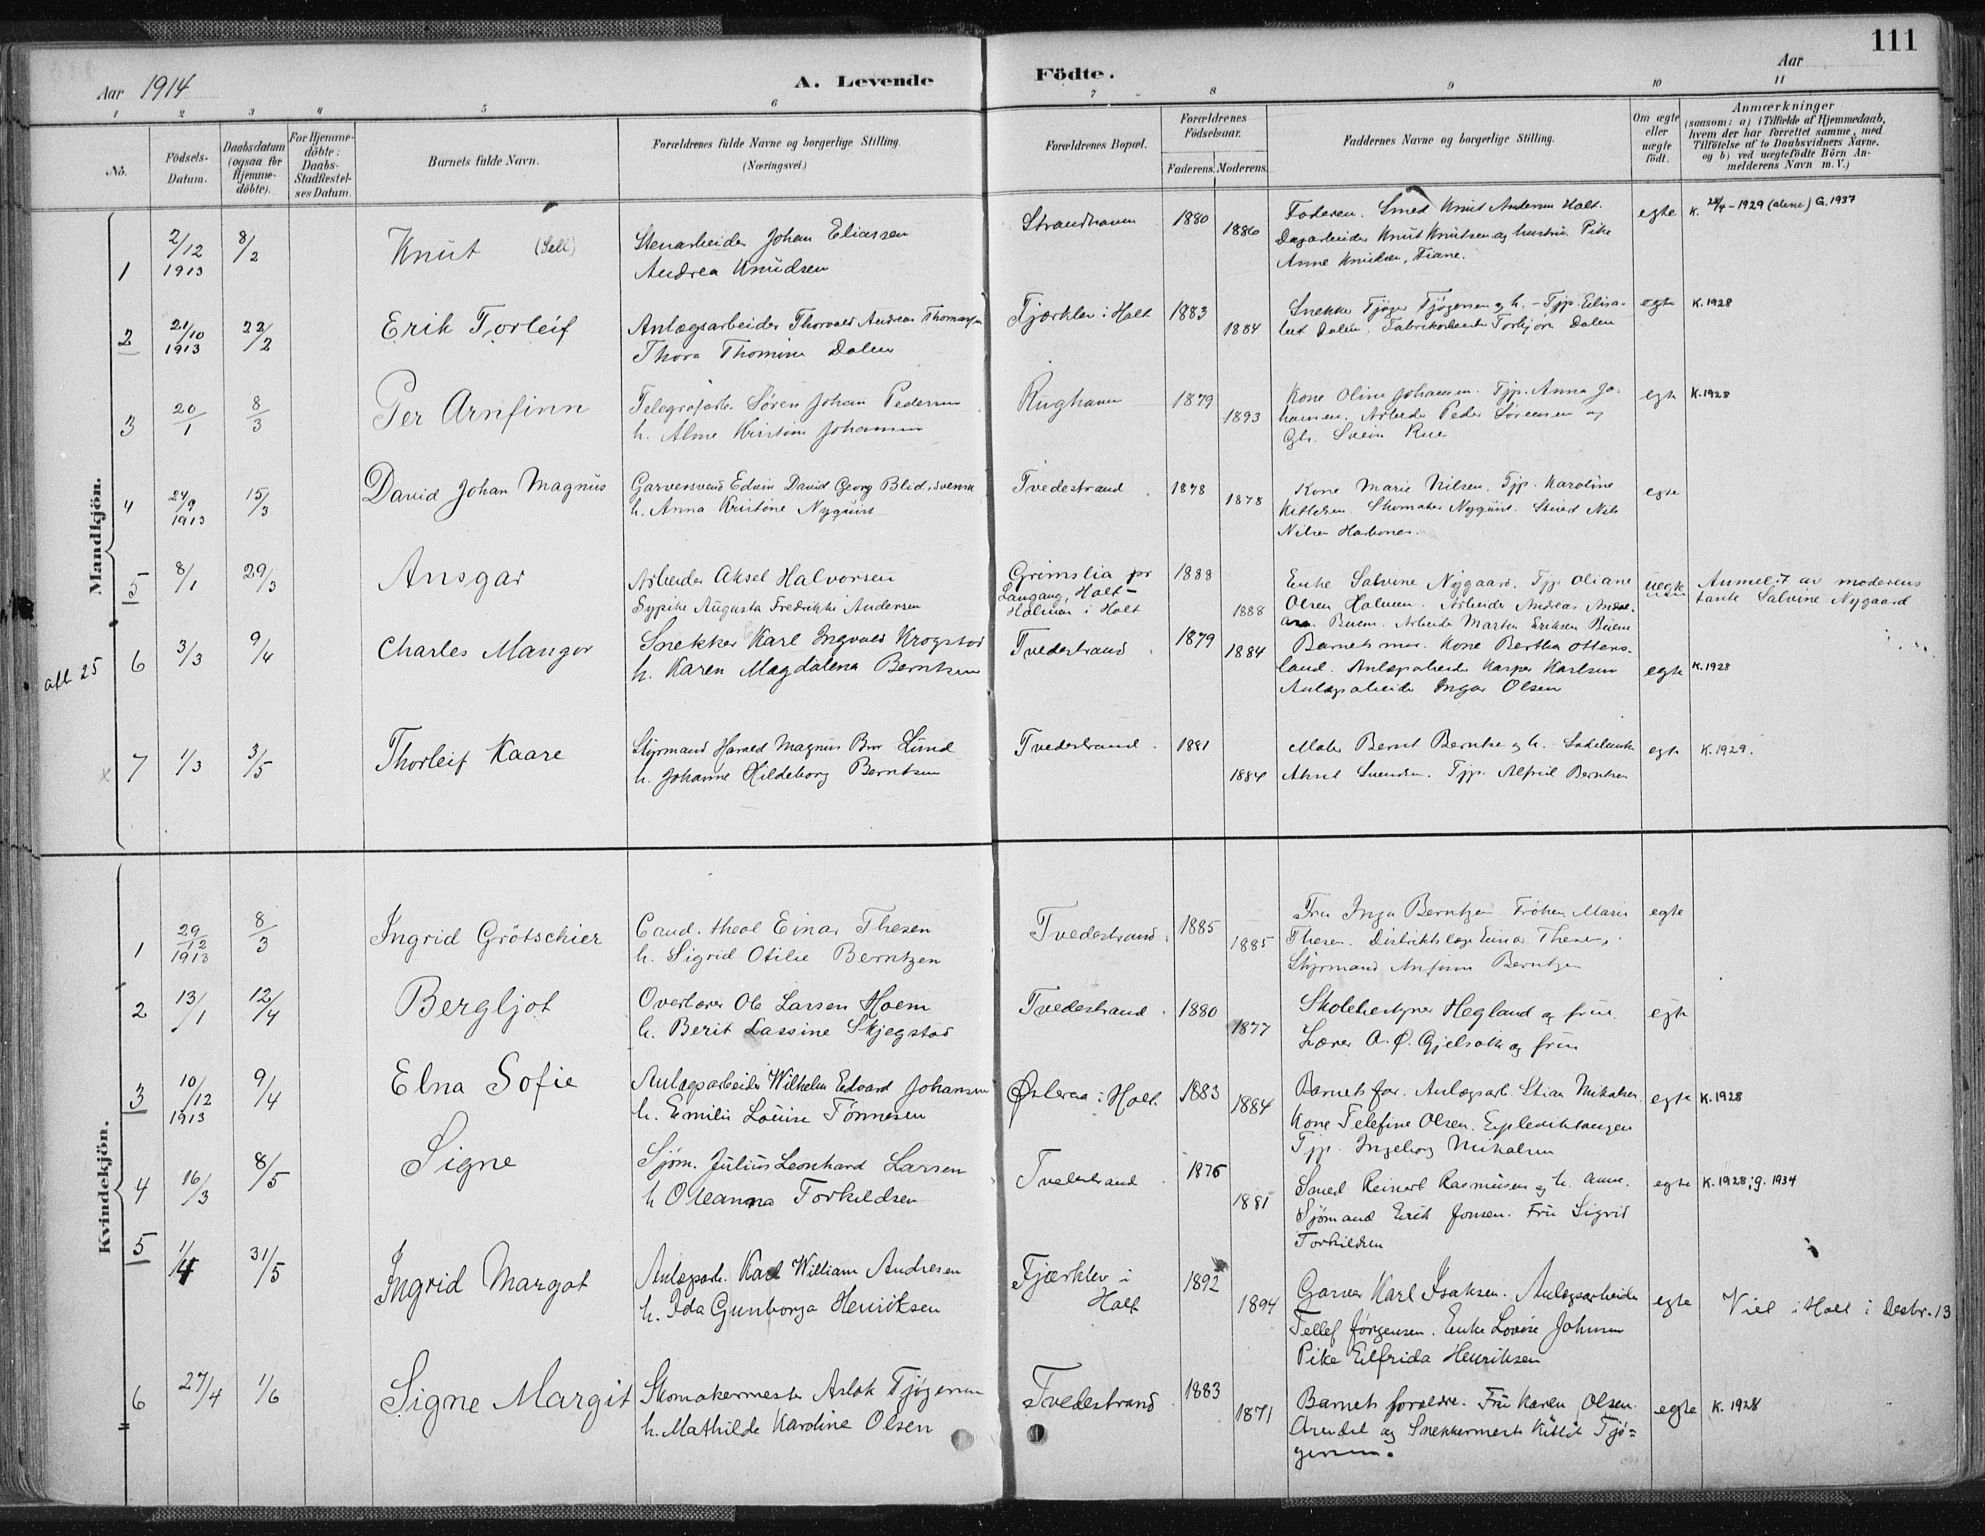 111
Aar 1914
A. Levende Födte.
Aar
1 2 3 4 5 6 7 8 9 10 11
No.
Födsels-Datum.
Daabsdatum (ogsaa for Hjemme-döbte).
For Hjemme-döbte: Daabs-Stadfæstel-ses Datum.
Barnets fulde Navn.
Forældrenes fulde Navne og borgerlige Stilling. (Næringsvei.)
Forældrenes Bopæl.
Forældrenes Födselsaar.
Faderens. Moderens.
Faddernes Navne og borgerlige Stilling.
Om ægte eller uægte födt.
Anmærkninger (saasom: a) i Tilfælde af Hjemmedaab, hvem der har forrettet samme, med Tilföielse af to Daabsvidners Navne, og b) ved uægtefödte Börn Anmelderens Navn m. V.)
Mandkjön.
1 2/12 1913 8/2 Knut Stenarbeider Johan Eliassen
Andrea Knudsen
Strandhaven 1880 1886
Faderen. Smed Knut Andersen Holt.
Dagarbeider Knut Knutsen og hustru. Pike
Anne Knudsen, Fiane.
egte K. 28/4-1929 (alene) G. 1937
2 21/10 1913 22/2 Erik Torleif Anlægsarbeider Thorvald Andreas Thomassen
Thora Thomine Dalen
Fjærklev i Holt 1883 1884
Snekker Tjøger Tjøgersen og h. - Tjp. Elisa-
bet Dalen. Torbjørn Dalen
egte K. 1928
3 20/1 8/3 Per Arnfinn Telegrafarb. Søren Johan Pedersen
h. Alme Kristine Johansen
Rughaven 1879 1893
Kone Oline Johansen. Tjp. Anna Jo-
hansen. Arbeider Peder Sørensen og
Gbr. Svein Rue
egte K. 1928
4 24/9 1913 15/3 David Johan Magnus Garversvend Edvin David Georg Blid, svensk
h. Anna Kristine Nyquist
Tvedestrand 1878 1878
Kone Marie Nilsen. Tjp. Karoline
Kittelsen Skomaker Nyquist. Smed Nils
Nilsen
egte
5 8/1 29/3 Ansgar Arbeider Aksel Halvorsen
Sypike Augusta Fredrikke Andersen
Grimslia pr
Langang, Holt -
Holmen i Holt
1888 1888
Enke Salvine Nygaard. Tjp. Oliane
Olsen Holmen. Arbeider Andreas
Arbeider Martin Eriksen
uegte
Anmeldt av moderens
tante Salvine Nygaard
afl 25
6 3/3 9/4 Charles Mangor Snekker Karl Ingvald Krogstad
h. Karen Magdalena Berntsen
Tvedestrand 1879 1884
Barnets mor. Kone Bertha Ottens-
land. Anlægsarbeider Kasper Karlsen
Anlægsarbeider Ingar Olsen
egte K. 1928
x 7 1/3 3/5 Thorleif Kaare Styrmand Harald Magnus Lund
h. Johanne Hildeborg Berntsen
Tvedestrand 1881 1884
Maler Bernt Berntsen og h.
Aksel Svendsen. Tjp. Alfred Berntsen
egte K. 1929.
Kvindekjön.
1 29/12 1913 8/3 Ingrid Grötschier Cand. theol Einar Thesen
h. Sigrid Otilie Berntzen
Tvedestrand 1885 1885
Fru Inga Berntzen Frøken Marie
Thesen. Distriktslæge Einar Thesen.
Styrmand Anfinn Berntzen
egte
2 13/1 12/4 Bergljot Overlærer Ole Larsen Hoem
h. Berit Lassine Skjegstad
Tvedestrand 1880 1877
Skolebestyrer Hegland og frue
Lærer A. Ø. Gjelsvik og frue
egte
3 10/12 1913 9/4 Elna Sofie Anlægsarbeider Wilhelm Edvard Johansen
h. Emilie Louise Tønnesen
Østeraa i Holt. 1883 1884
Barnets far. Anlægsarb. Stian Mikalsen.
Kone Telefine Olsen.
Tjp. Ingeborg Mikalsen
egte K. 1928
4 16/3 8/5 Signe Sjøm. Julius Leonhard Larsen
h Oleanna Torkildsen
Tvedestrand 1876 1881
Smed Reinert Rasmussen og h. Anne.
Sjømand Erik Jonsen. Fru Sigrid
Torkildsen
egte K. 1928; g. 1934
5 1/4 31/5 Ingrid Margot Anlægsarb. Karl William Andresen
h. Ida Gunborga Henriksen
Fjærklev i
Holt
1892 1894
Garver Karl Isaksen. Anlægsarbeider
Tellef Jørgensen. Enke Lovise Johnsen
Pike Elfrida Henriksen
egte Viel i Holt i Desbr. 13
6 27/4 1/6 Signe Margit Skomakermester Aslak Tjøgersen
h. Mathilde Karoline Olsen
Tvedestrand 1883 1871
Barnets forældre. Fru Karen Olsen
Arendal og Snekkermester Kittil Tjø=
gersen.
egte K. 1928